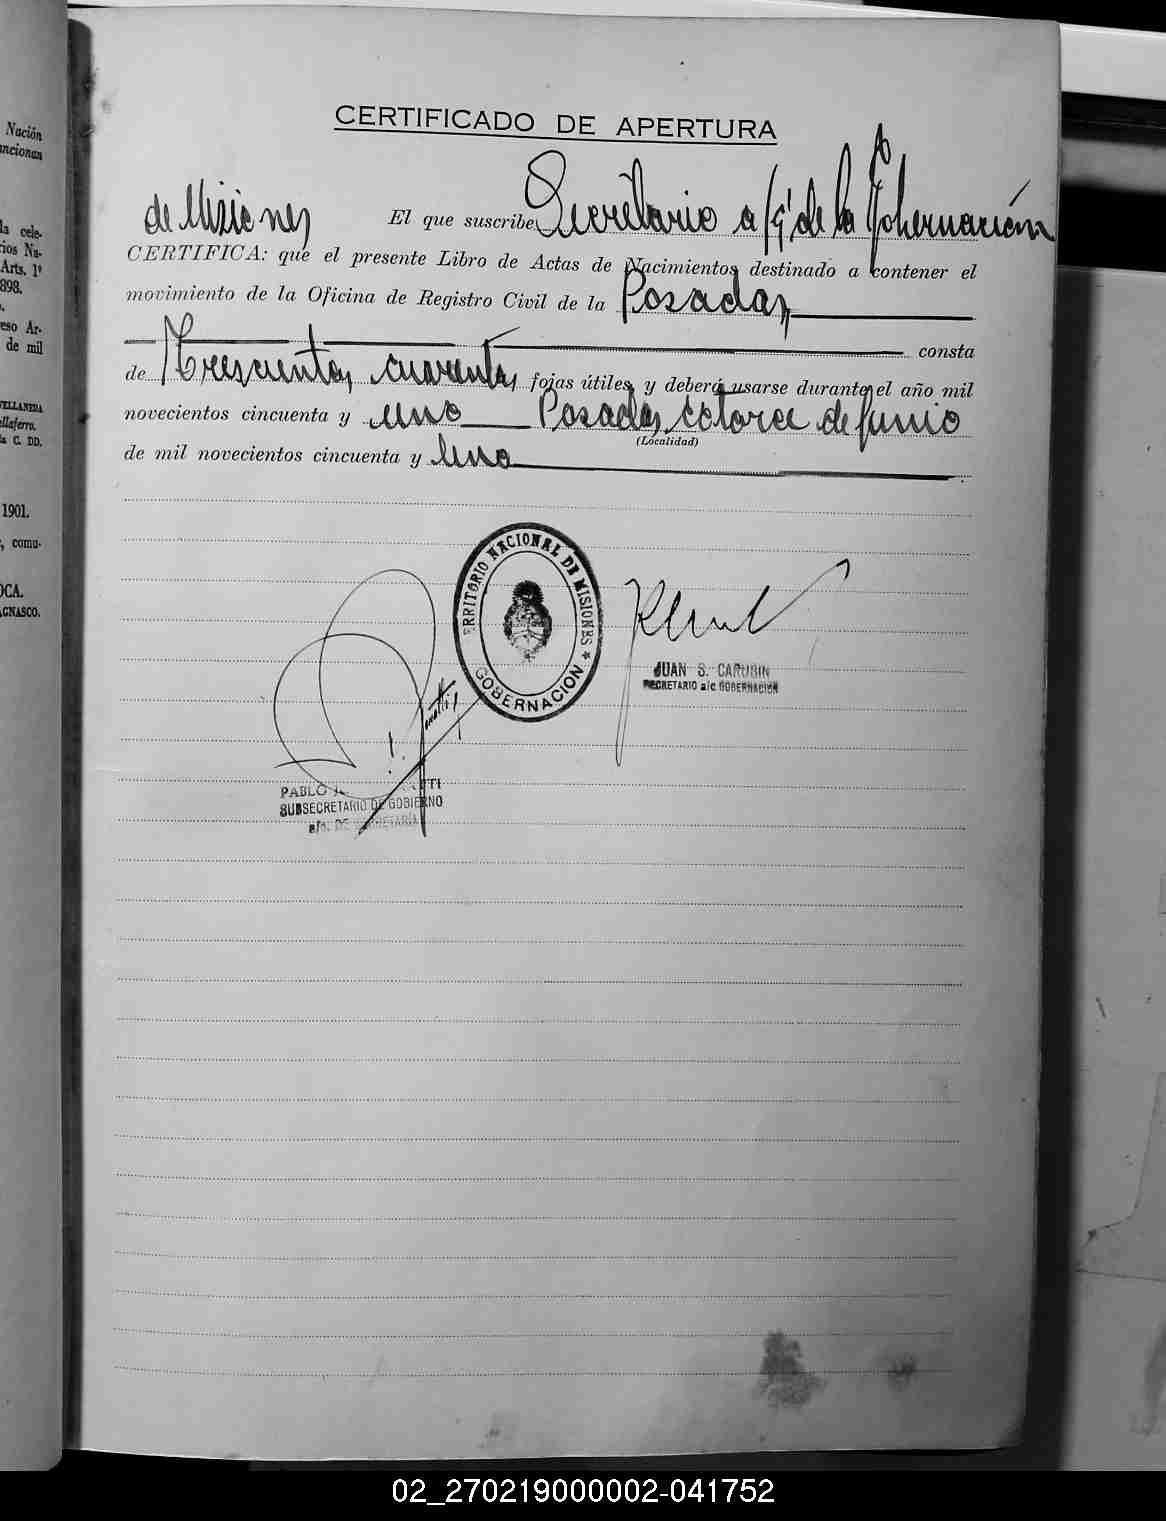 Nación
ncionan
la cele-
ios Na-
Arts. 1º
898.
eso Ar-
de mil
VELLANEDA
llaferro.
C. DD.
1901.
, comu-
OCA.
AGNASCO.
CERTIFICADO DE APERTURA
El que suscribe Secretario a/c de la Gobernación
de Misiones
CERTIFICA: que el presente Libro de Actas de Nacimientos destinado a contener el
movimiento de la Oficina de Registro Civil de la Posadas
consta
de Trescientas cuarenta fojas útiles, y deberá usarse durante el año mil
novecientos cincuenta y uno Posadas, catorce de junio
(Localidad)
de mil novecientos cincuenta y uno
TERRITORIO NACIONAL DE MISIONES
GOBERNACION
JUAN S. CARUBIN
SECRETARIO a/c GOBERNACION
PABLO
SUBSECRETARIO DE GOBIERNO
a/c. DE SECRETARIA
02_270219000002-041752